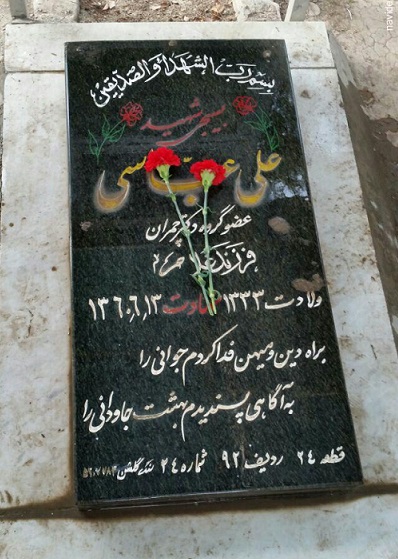 بسم رب الشهداء والصدیقین
بسیجی شهید
علی عباسی
عضو گروه دکتر چمران
فرزند
ولادت ۱۳۳۳ شهادت ۱۳۶۰٫۶٫۱۳
براه دین و میهن فدا کردم جوانی را
به آگاهی پسندیدم بهشت جاودانی را
قطعه ۲۴ ردیف ۹۲ شماره ۲۴